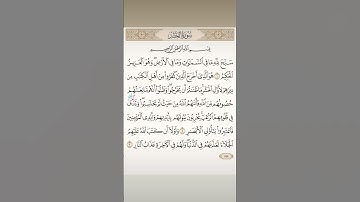 سُورَةُ الحَشْرِ
بِسْمِ اللَّهِ الرَّحْمَٰنِ الرَّحِيمِ
سَبَّحَ لِلَّهِ مَا فِي السَّمَاوَاتِ وَمَا فِي الْأَرْضِ وَهُوَ الْعَزِيزُ
الْحَكِيمُ ١ هُوَ الَّذِي أَخْرَجَ الَّذِينَ كَفَرُوا مِنْ أَهْلِ الْكِتَابِ مِن
دِيَارِهِمْ لِأَوَّلِ الْحَشْرِ مَا ظَنَنتُمْ أَن يَخْرُجُوا وَظَنُّوا أَنَّهُم مَّانِعَتُهُمْ
حُصُونُهُم مِّنَ اللَّهِ فَأَتَاهُمُ اللَّهُ مِنْ حَيْثُ لَمْ يَحْتَسِبُوا وَقَذَفَ
فِي قُلُوبِهِمُ الرُّعْبَ يُخْرِبُونَ بُيُوتَهُم بِأَيْدِيهِمْ وَأَيْدِي الْمُؤْمِنِينَ
فَاعْتَبِرُوا يَا أُولِي الْأَبْصَارِ ٢ وَلَوْلَا أَن كَتَبَ اللَّهُ عَلَيْهِمُ
الْجَلَاءَ لَعَذَّبَهُمْ فِي الدُّنْيَا وَلَهُمْ فِي الْآخِرَةِ عَذَابُ النَّارِ ٣